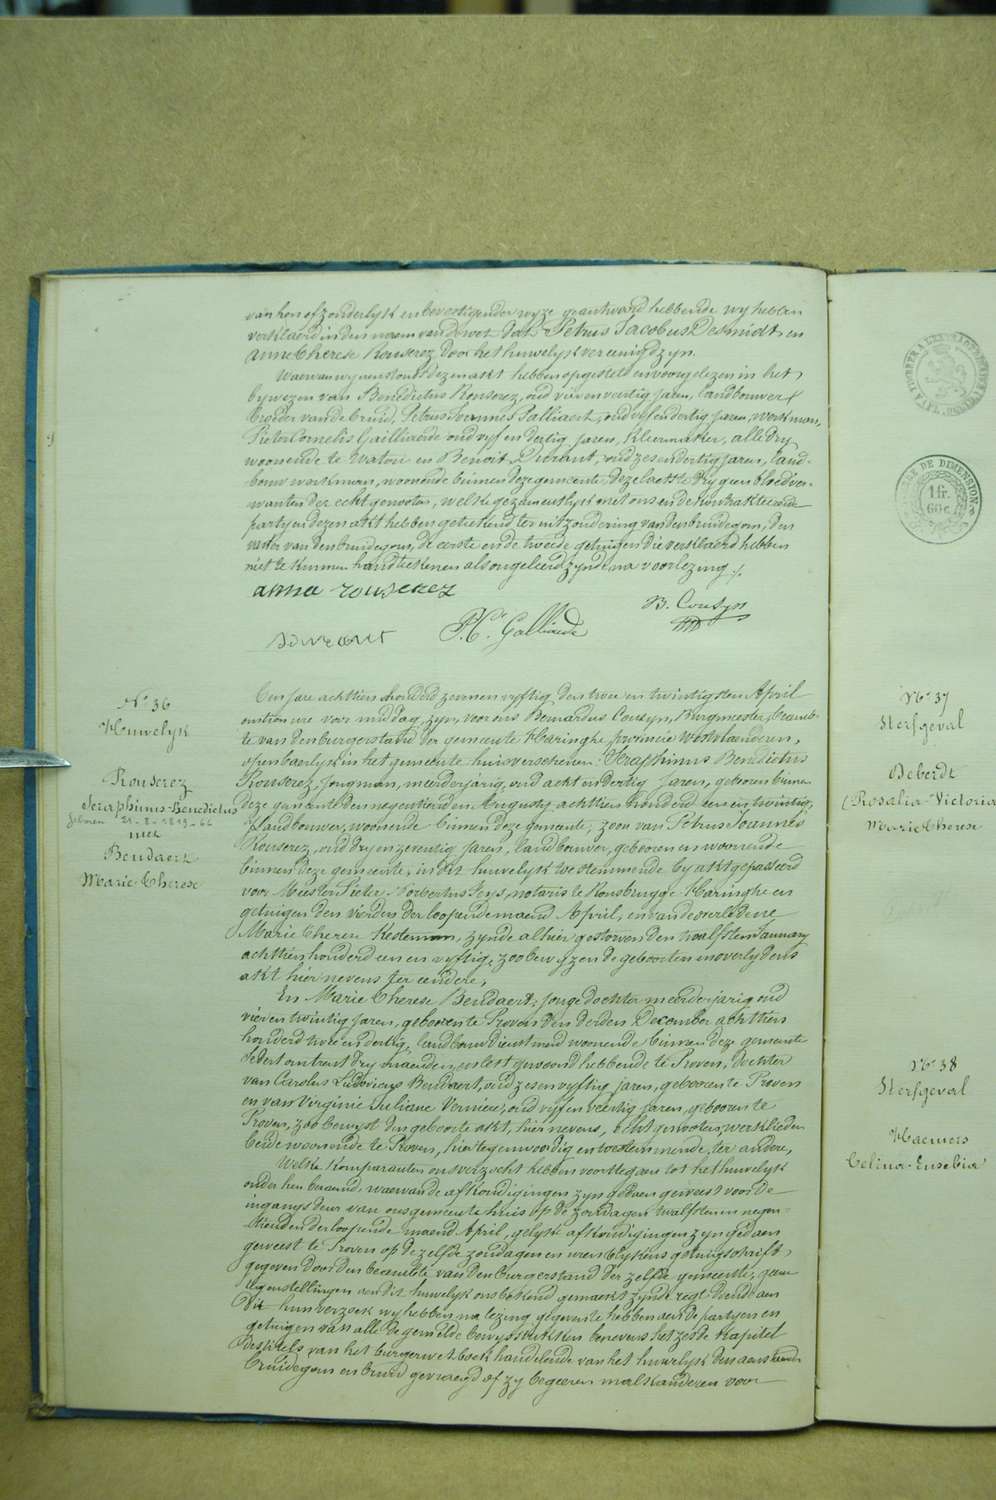 van hen afzonderlyk en bevestigender wyze geantwoord hebbende wy hebben
verklaerd in den naem van de wet dat Petrus Jacobus Desmidt en
Anne Therese Rouserez, door het huwelyk vereenigd zyn.
Waervan wy aenstonds dezen akt hebben opgesteld en voorgelezen in het
bywezen van Benedictus Rouserez, oud vier en veertig jaren, landbouwer
broeder van de bruid, Petrus Joannes Palliaert, oud vyf en dertig jaren, werkman,
Pieter Cornelis Gailliaerde oud vyf en dertig jaren, kleermaker, alle dry
woonende te Watou en Benoit Durant, oud zes en dertig jaren, land-
bouw werkman, woonende binnen deze gemeente, deze laetste dry geen bloedver-
wanten der echtgenooten, welke gezamentlyk met ons en de kontrakteerende
partyen dezen akt hebben geteekend ter uitzondering van den bruidegom, den
vader van den bruidegom, de eerste en de tweede getuigen die verklaerd hebben
niet te kunnen handteekenen als ongeleerd zynde, na voorlezing ./.
anna rouserez
B. Cousyn
durant
P. C. Galliaerde
N° 36
Huwelyk
Rouserez
Seraphinus-Benedictus
geboren 21-8-1819-66
met
Beudaert
Marie Therese
Een jare achttien honderd zeven en vyftig, den twee en twintigsten April
om tien ure voor middag, zyn, voor ons Bernardus Cousyn, Burgmeester, beamb-
te van den burgerstand der gemeente Haringhe provincie Westvlaenderen,
openbaerlyk in het gemeente huis verschenen: Seraphinus Benedictus
Rouserez, jongman, meerderjarig, oud acht en dertig jaren, geboren binnen
deze gemeente den negentienden Augusty achttien honderd een en twintig,
landbouwer, woonende binnen deze gemeente, zoon van Petrus Joannes
Rouserez, oud dry en zeventig jaren, landbouwer, geboren en woonende
binnen deze gemeente, in dit huwelyk toestemmende by akt gepasseerd
voor Meester Pieter Norbertus Seys, notaris te Rousbrugge-Haringhe en
getuigen den vierden der loopende maend April, en van de overledene
Marie Therese Kesteman, zynde alhier gestorven den twalfsten January
achttien honderd een en vyftig, zoo bewyzen de geboorte en overlydens
akt hier nevens ter eendere,
En Marie Therese Beudaert, jonge dochter meerderjarig oud
vier en twintig jaren, geboren te Proven den derden December achttien
honderd twee en dertig, landbouw dienstmeid woonende binnen deze gemeente
sedert omtrent dry maenden, en lest gewoond hebbende te Proven, dochter
van Carolus Ludovicus Beudaert, oud zes en vyftig jaren, geboren te Proven
en van Virginie Juliane Verniere, oud vyf en veertig jaren, geboren te
Proven, zoo bewyst den geboorte akt, hier nevens, echtgenooten, werklieden
beide woonende te Proven, hier tegenwoordig en toestemmende, ter andere,
Welke komparanten ons verzocht hebben voortegaen tot het huwelyk
onder hen beraemd, waervan de afkondigingen zyn gedaen geweest voor de
ingangs deur van ons gemeente huis op de zondagen twalfsten en negen-
tienden der loopende maend April, gelyk afkondigingen zyn gedaen
geweest te Proven op de zelfde zondagen en uren blykens getuigschrift,
gegeven door den beambte van den burgerstand der zelfde gemeente, geene
tegenstellingen aen dit huwelyk ons bekend gemaekt zynde regt doende aen
hun verzoek wy hebben na lezing gegeven te hebben aen de partyen en
getuigen van alle de gemelde bewysstukken benevens het zeste kapittel
destitels van het burgerwetboek handelende van het huwelyk den aenstaenden
bruidegom en bruid gevraegd of zy begeeren malkanderen voor
LE DE DIMENSION
1 fr.
66 c.
N° 37
Sterfgeval
Deberdt
(Rosalia-Victoria
Marie Therese
N° 38
Sterfgeval
Haemers
Celina-Eusebia